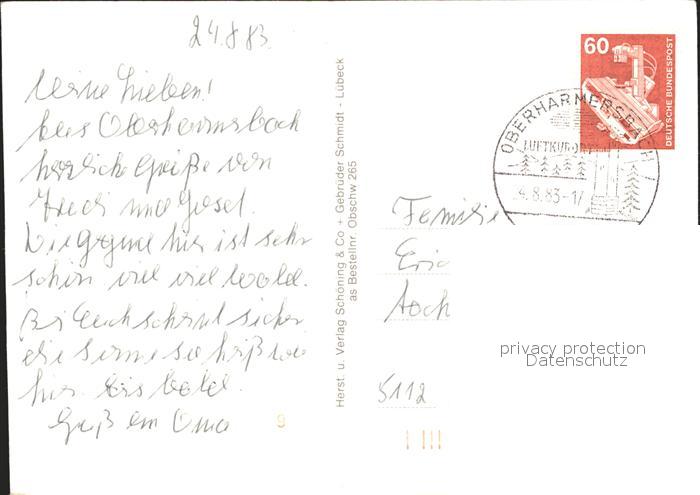 24.8.83.
Meine Lieben!
Aus Oberharmersbach
herzliche Grüße von
Hedi und Josef.
Die Gegend hier ist sehr
schön viel viel Wald.
Bei Euch scheint sicher
die Sonne so heiß wie
hier. Bis bald.
Gruß an Oma
9
Herst. u. Verlag Schöning & Co + Gebrüder Schmidt - Lübeck
as Bestellnr. Obschw 265
60
DEUTSCHE BUNDESPOST
OBERHARMERSBACH
LUFTKURORT
4.8.83-17
Familie
Eric
5112
privacy protection
Datenschutz